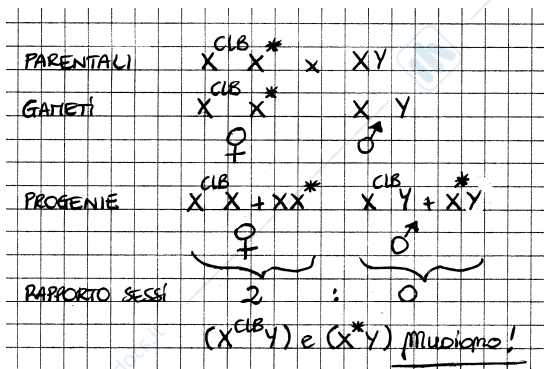 PARENTALI X^CLB X* x XY
GAMETI X^CLB X* X Y
♀ ♂
PROGENIE X^CLB X + XX* X^CLB Y + X*Y
♀ ♂
RAPPORTO SESSI 2 : 0
(X^CLB Y) e (X*Y) muoiono!